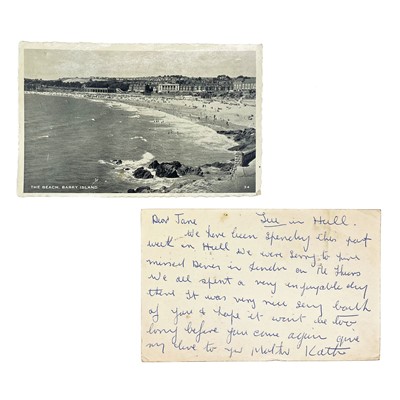 THE BEACH, BARRY ISLAND
Dear Jane Tue in Hull.
We have been spending this past
week in Hull We were sorry to have
missed in London on the Thurs
We all spent a very enjoyable day
there It was very nice being back
of you & hope it wont be too
long before you come again give
my love to yr Mother Kath